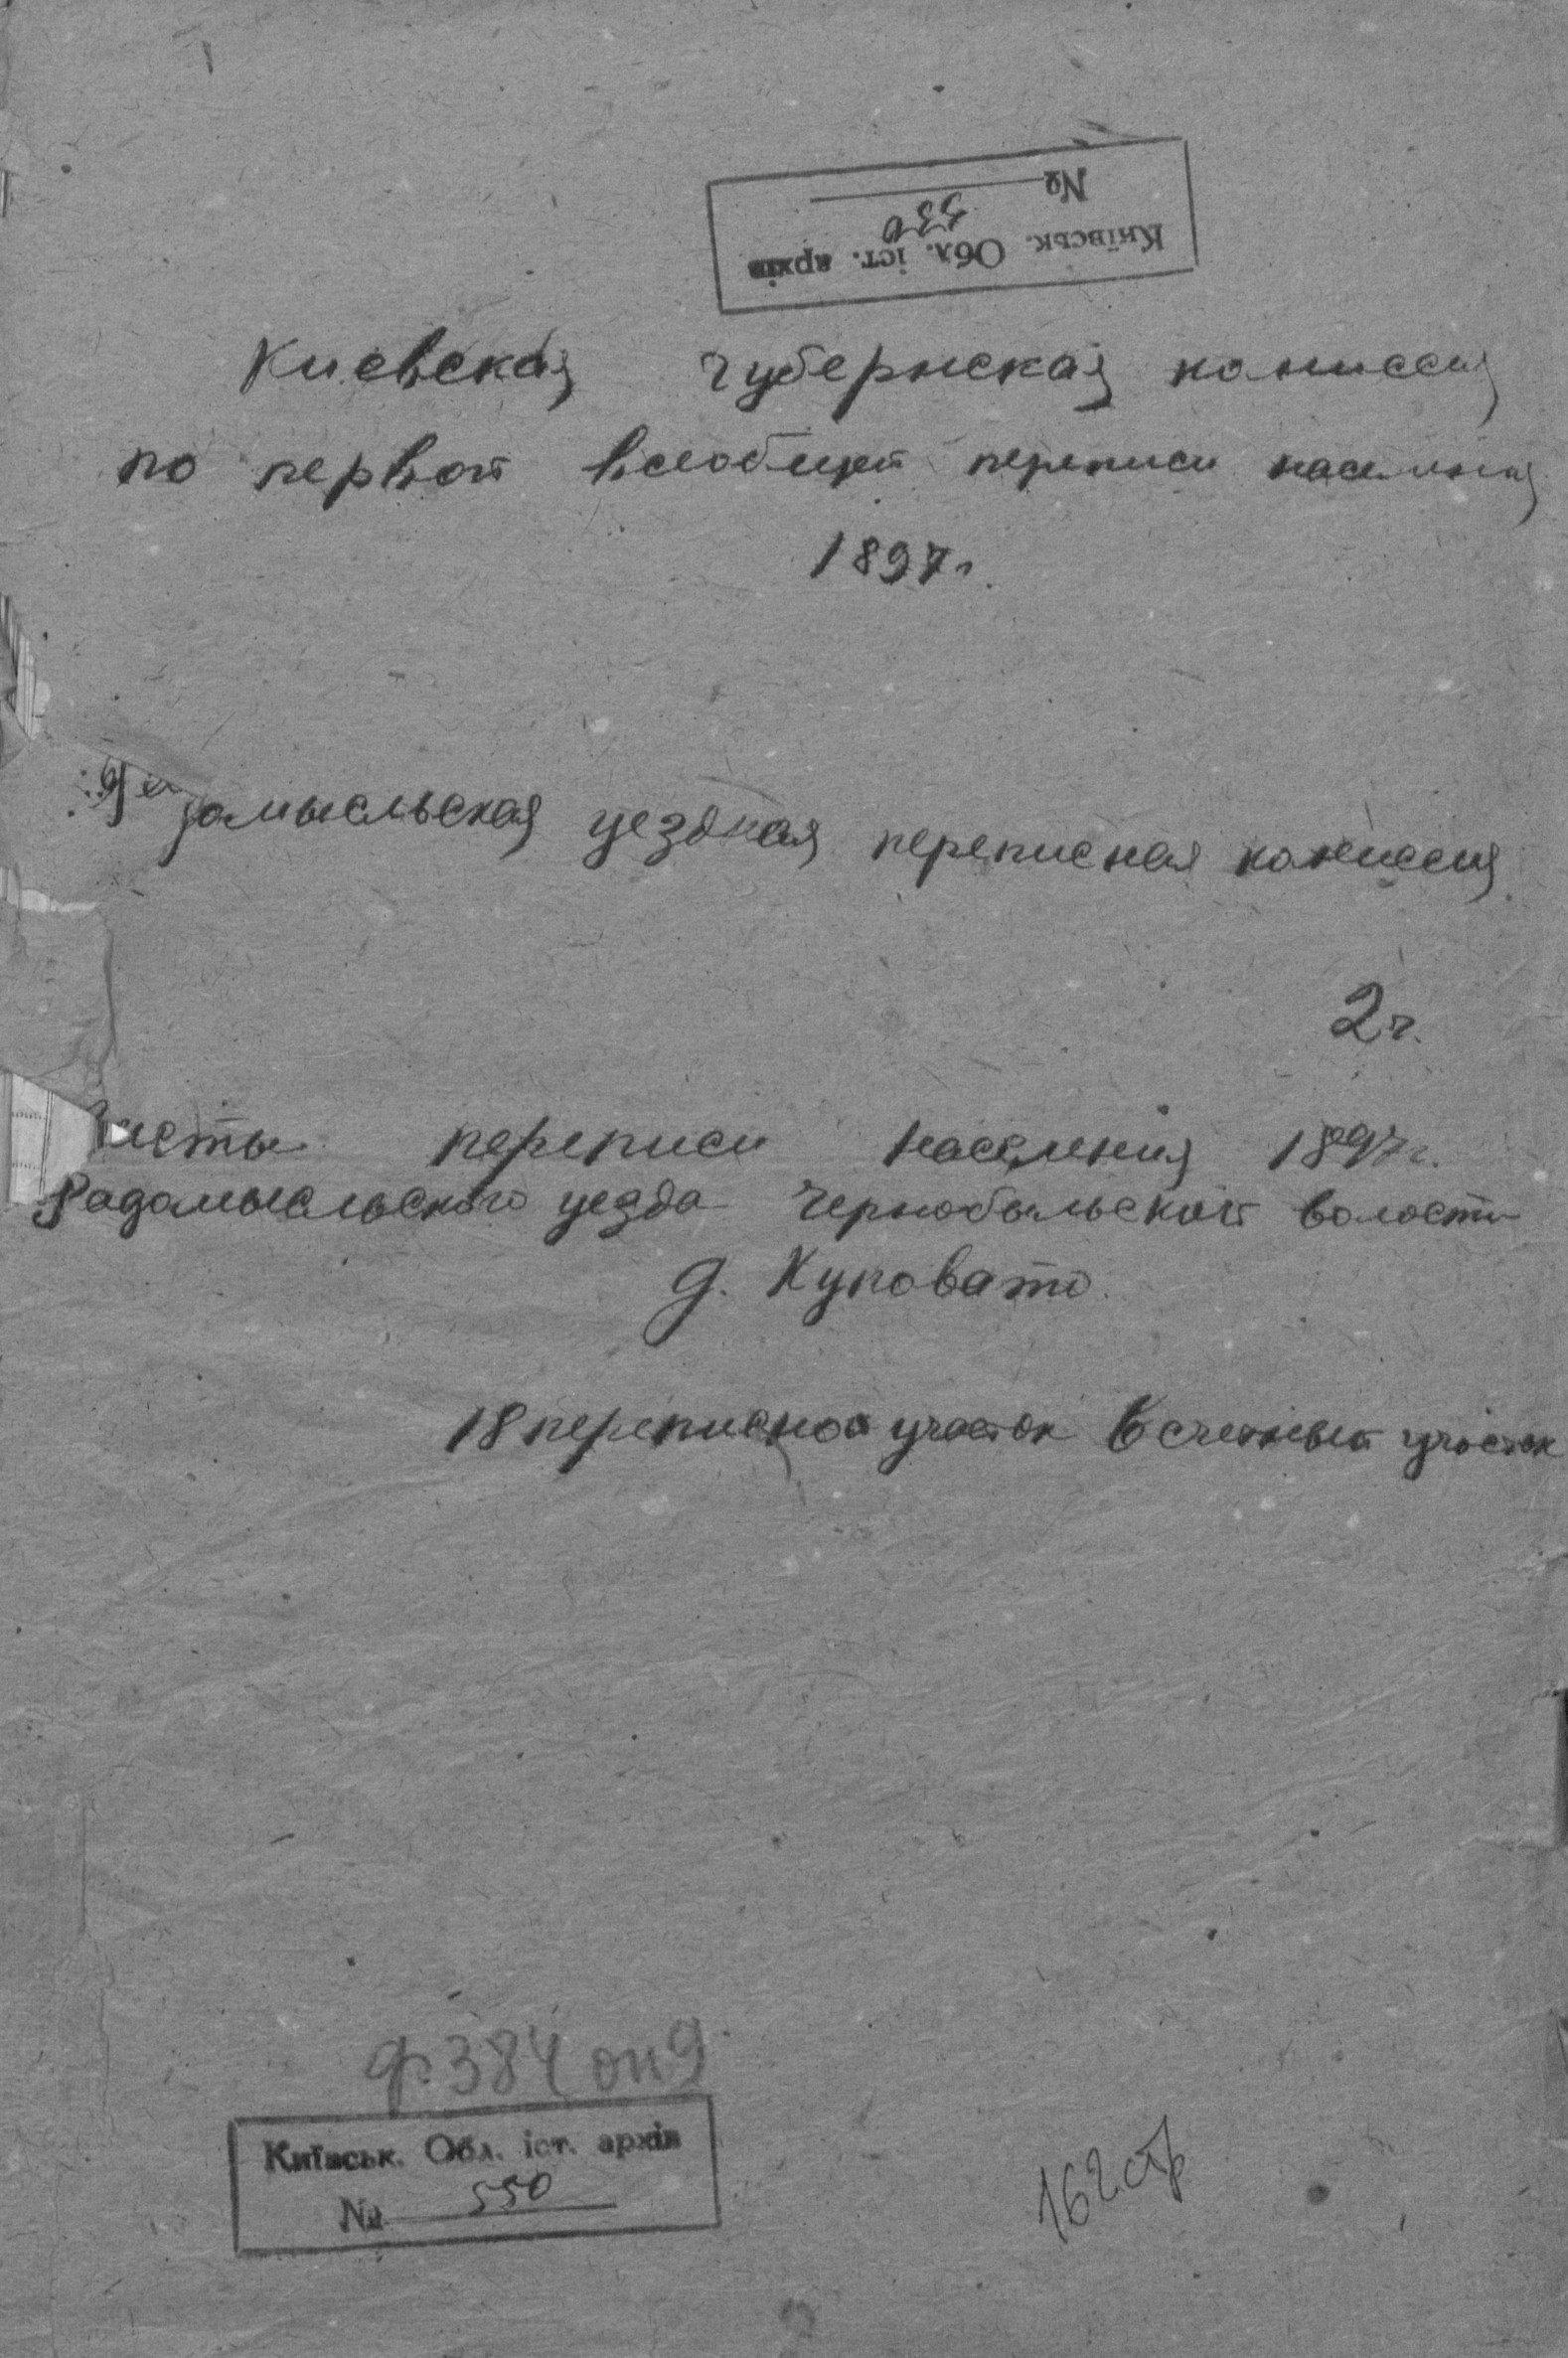 Київськ. Обл. іст. архів
550
№
Киевская губернская комиссия
по первой всеобщей переписи населения
1897г.
омысльская уездная переписная комиссия
2ч.
Листы переписи населения 1897г.
Радомысльского уезда Чернобыльской волости
д. Куповато
18 переписной участок 6 счетный участок
ф. 384 оп 9
Київськ. Обл. іст. архів
№ 550
162 стр